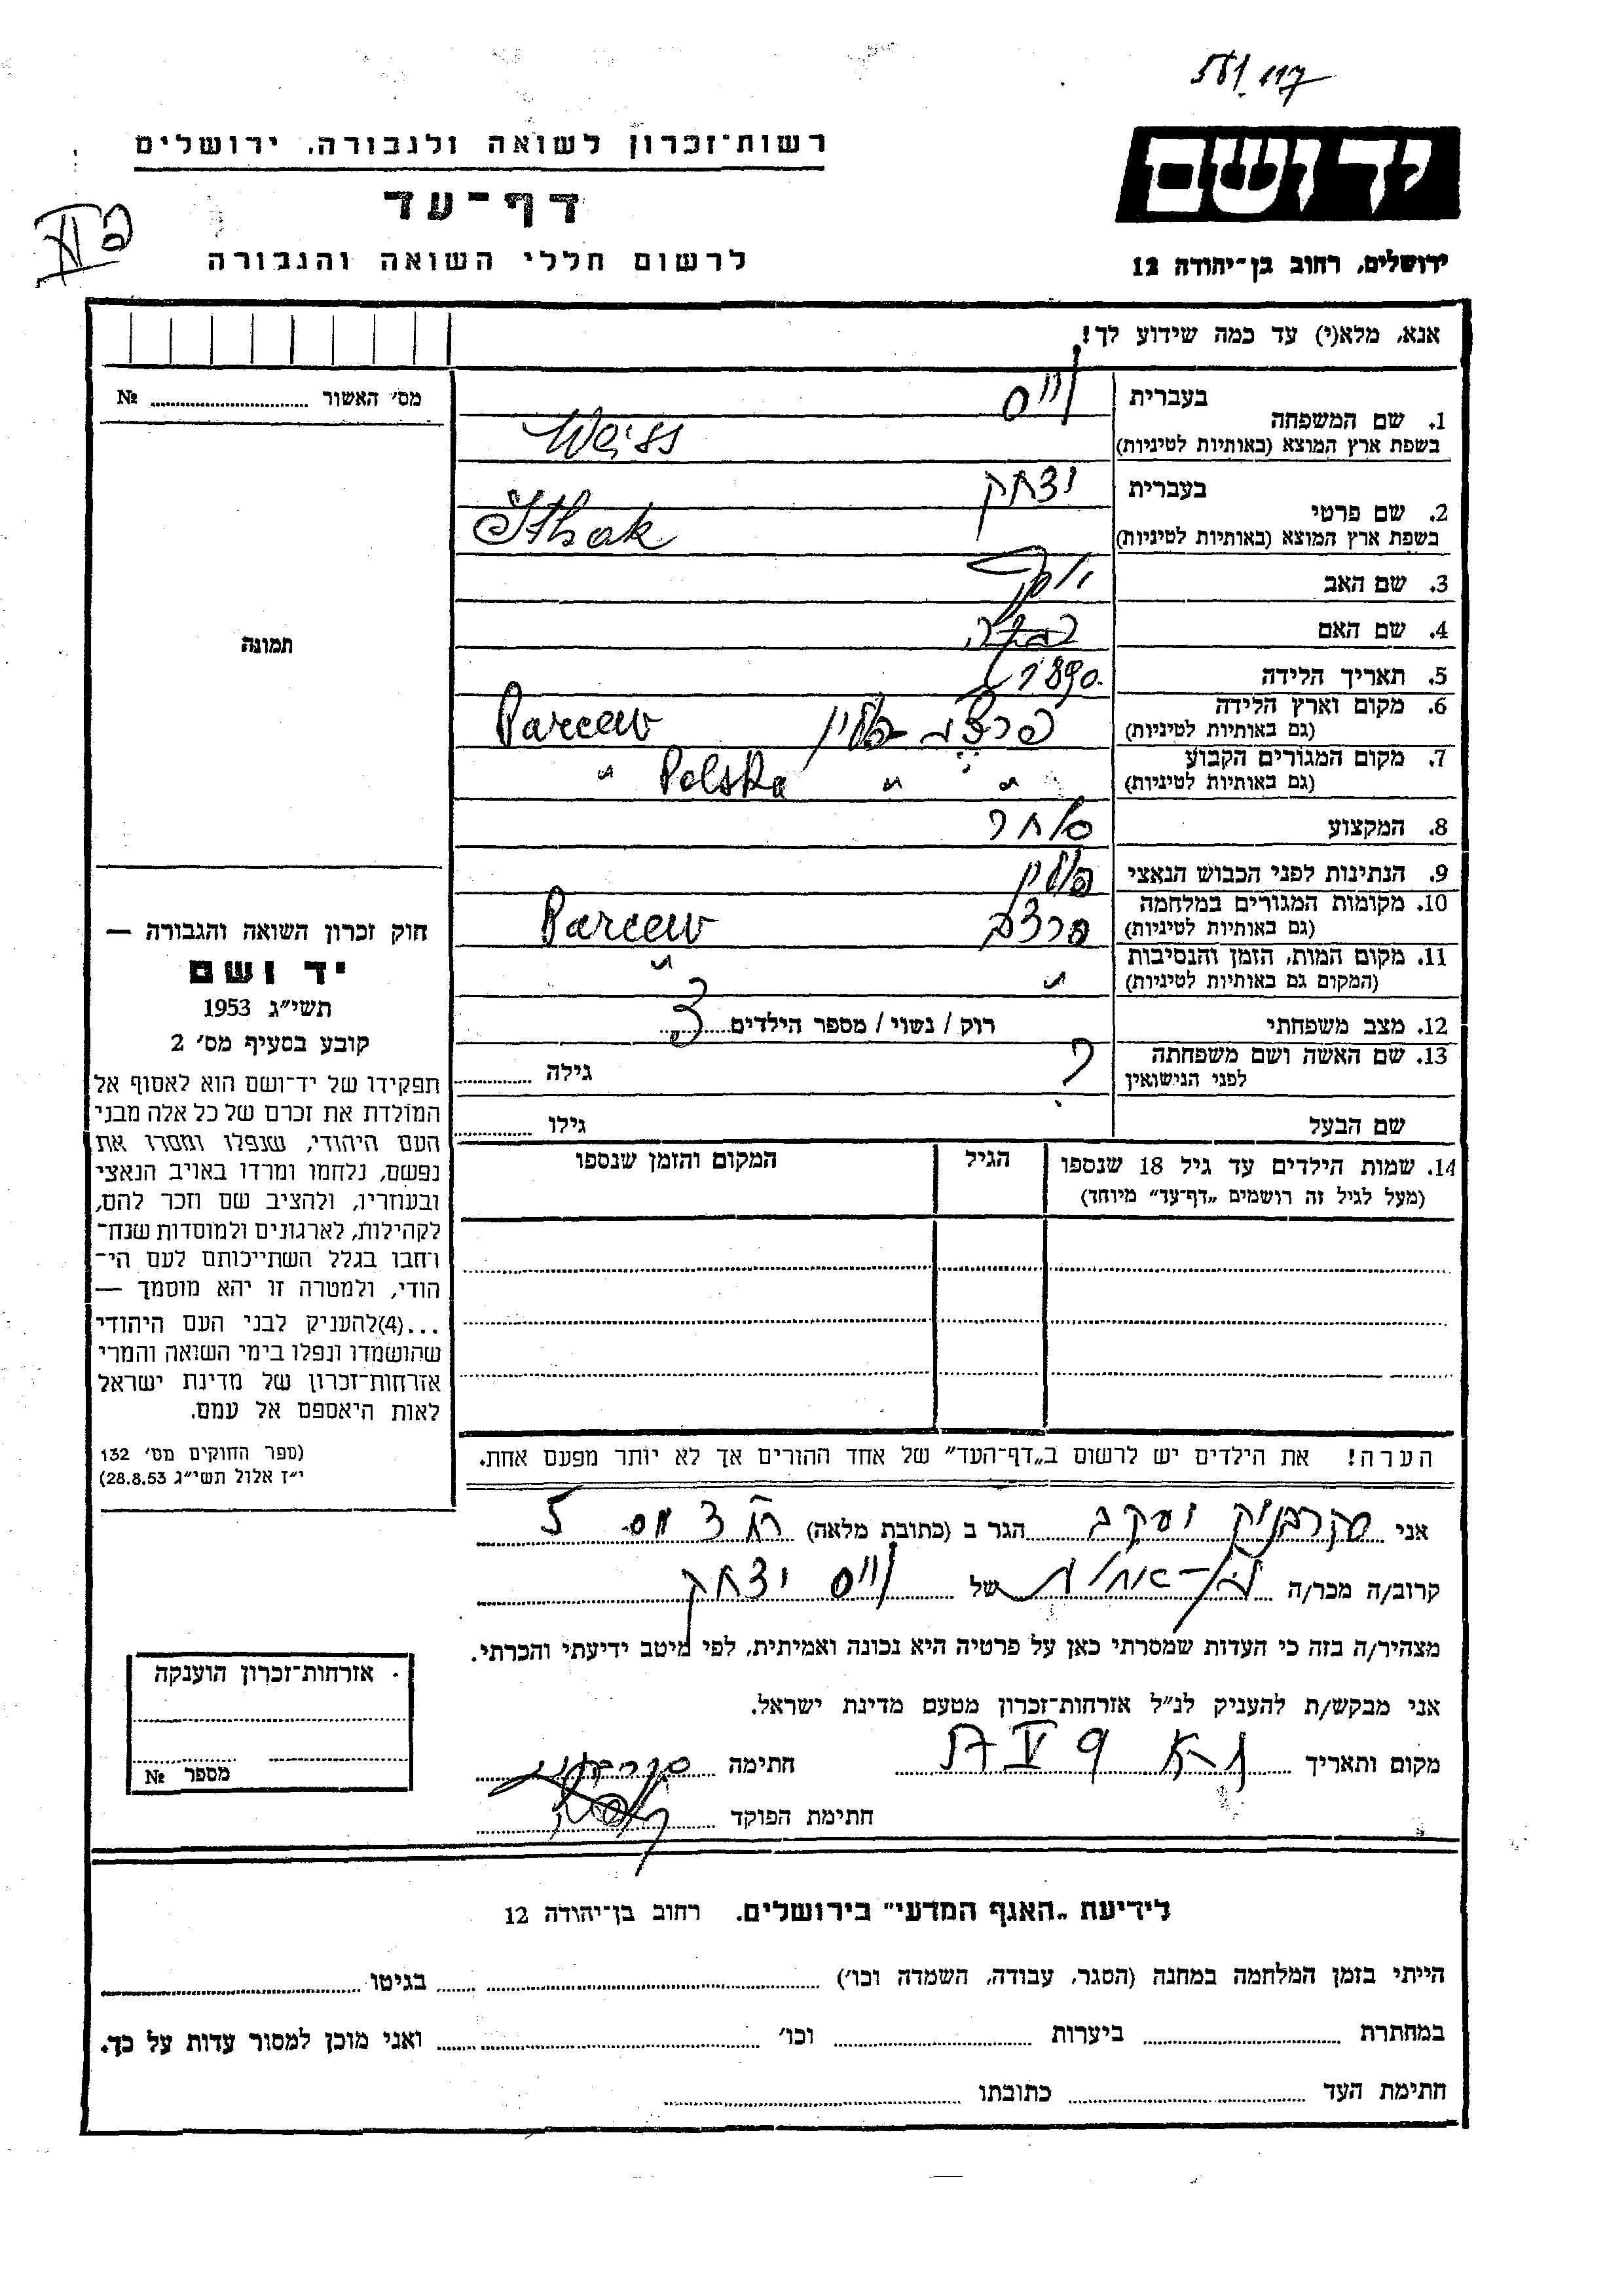 581/117
רשות־זכרון לשואה ולגבורה, ירושלים
דף־עד
לרשום חללי השואה והגבורה
יד ושם
ירושלים, רחוב בן־יהודה 12
אנא, מלא(י) עד כמה שידוע לך!
מס׳ האשור № 
תמונה
1. שם המשפחה
בעברית וייס
בשפת ארץ המוצא (באותיות לטיניות) Weiss
2. שם פרטי
בעברית יצחק
בשפת ארץ המוצא (באותיות לטיניות) Ithak
3. שם האב יוסף
4. שם האם
5. תאריך הלידה 1890
6. מקום וארץ הלידה (גם באותיות לטיניות) פרצב פולין Parcew
7. מקום המגורים הקבוע (גם באותיות לטיניות) " " Polska "
8. המקצוע סוחר
9. הנתינות לפני הכבוש הנאצי פולין
10. מקומות המגורים במלחמה (גם באותיות לטיניות) פרצב Parcew
11. מקום המות, הזמן והנסיבות (המקום גם באותיות לטיניות) " "
12. מצב משפחתי רוק / נשוי / מספר הילדים
13. שם האשה ושם משפחתה לפני הנישואין ? גילה
שם הבעל גילו
14. שמות הילדים עד גיל 18 שנספו (מעל לגיל זה רושמים „דף־עד״ מיוחד)
הגיל
המקום והזמן שנספו
הערה! את הילדים יש לרשום ב„דף־העד״ של אחד ההורים אך לא יותר מפעם אחת.
חוק זכרון השואה והגבורה —
יד ושם
תשי״ג 1953
קובע בסעיף מס׳ 2
תפקידו של יד־ושם הוא לאסוף אל
המולדת את זכרם של כל אלה מבני
העם היהודי, שנפלו ומסרו את
נפשם, נלחמו ומרדו באויב הנאצי
ובעוזריו, ולהציב שם וזכר להם,
לקהילות, לארגונים ולמוסדות שנח־
רחבו בגלל השתייכותם לעם הי־
הודי, ולמטרה זו יהא מוסמך —
...(4)להעניק לבני העם היהודי
שהושמדו ונפלו בימי השואה והמרי
אזרחות־זכרון של מדינת ישראל
לאות היאספם אל עמם.
(ספר החוקים מס׳ 132
י״ז אלול תשי״ג 28.8.53)
אני יעקב הגר ב (כתובת מלאה) 5
קרוב/ה מכר/ה של וייס יצחק
מצהיר/ה בזה כי העדות שמסרתי כאן על פרטיה היא נכונה ואמיתית, לפי מיטב ידיעתי והכרתי.
אני מבקש/ת להעניק לנ״ל אזרחות־זכרון מטעם מדינת ישראל.
מקום ותאריך חתימה
חתימת הפוקד
אזרחות־זכרון הוענקה
מספר №
לידיעת „האגף המדעי״ בירושלים. רחוב בן־יהודה 12
הייתי בזמן המלחמה במחנה (הסגר, עבודה, השמדה וכו׳) בגיטו
במחתרת ביערות וכו׳ ואני מוכן למסור עדות על כך.
חתימת העד כתובתו